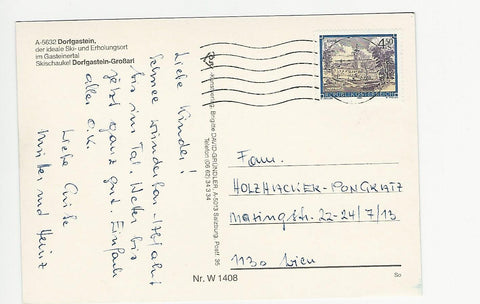 A-5632 Dorfgastein,
der ideale Ski- und Erholungsort
im Gasteinertal
Skischaukel Dorfgastein-Großarl
Liebe Kinder!
Schnee wunderbar - Abfahrt
bis ins Tal. Wetter bis
jetzt ganz gut. Einfach
alles O.K.
Liebe Grüße
Mutter und Heinz
Verlag Brigitte DAVID-GRÜNDLER, A-5013 Salzburg, Postf. 35
Telefon (06 62) 34 3 34
4.50
REPUBLIK ÖSTERREICH
Fam.
HOLZHACKER-PONGRATZ
22-24/7/13
1130 Wien
Nr. W 1408
So